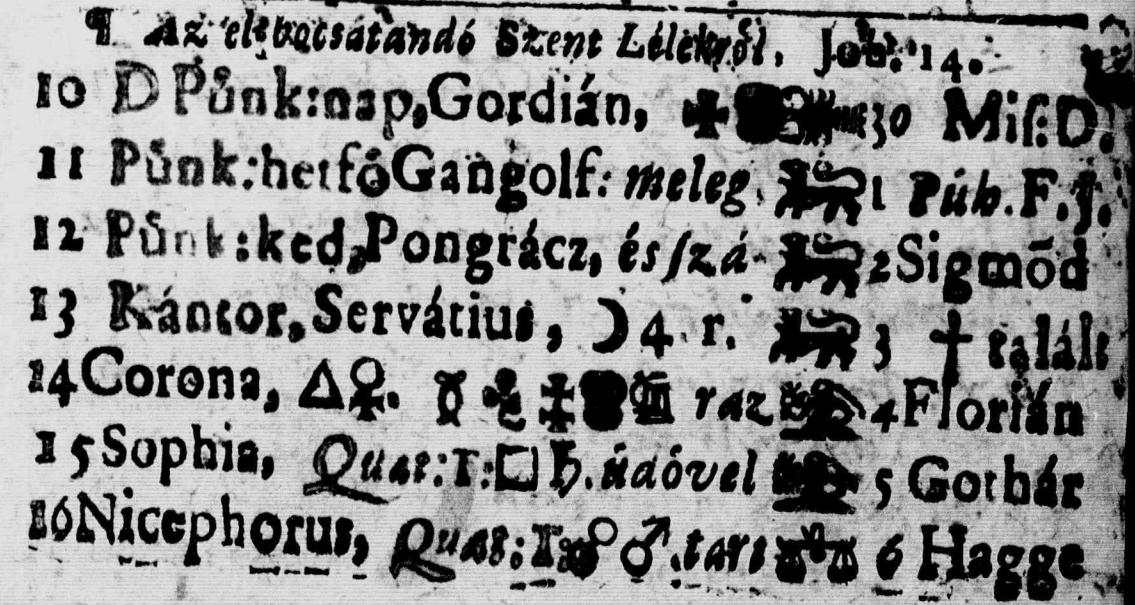 ¶ Az elbocsátandó Szent Lélekről, Joh. 14.
10 D Půnk:nap, Gordián, ✠ 30 Miſ:D.
11 Půnk:hetfő Gangolf: meleg. 1 Púb. F.J.
12 Půnk:ked, Pongrácz, és ſzá- 2 Sigmõd
13 Kántor, Servátius, ☽ 4. r. 3 † talált
14 Corona, △ ♀. ☿ ✠ raz 4 Florián
15 Sophia, Quat:T: □ ♄. údóvel 5 Gothár
16 Nicephorus, Quat:T: ☍ ♂. tart ♎ 6 Hagge